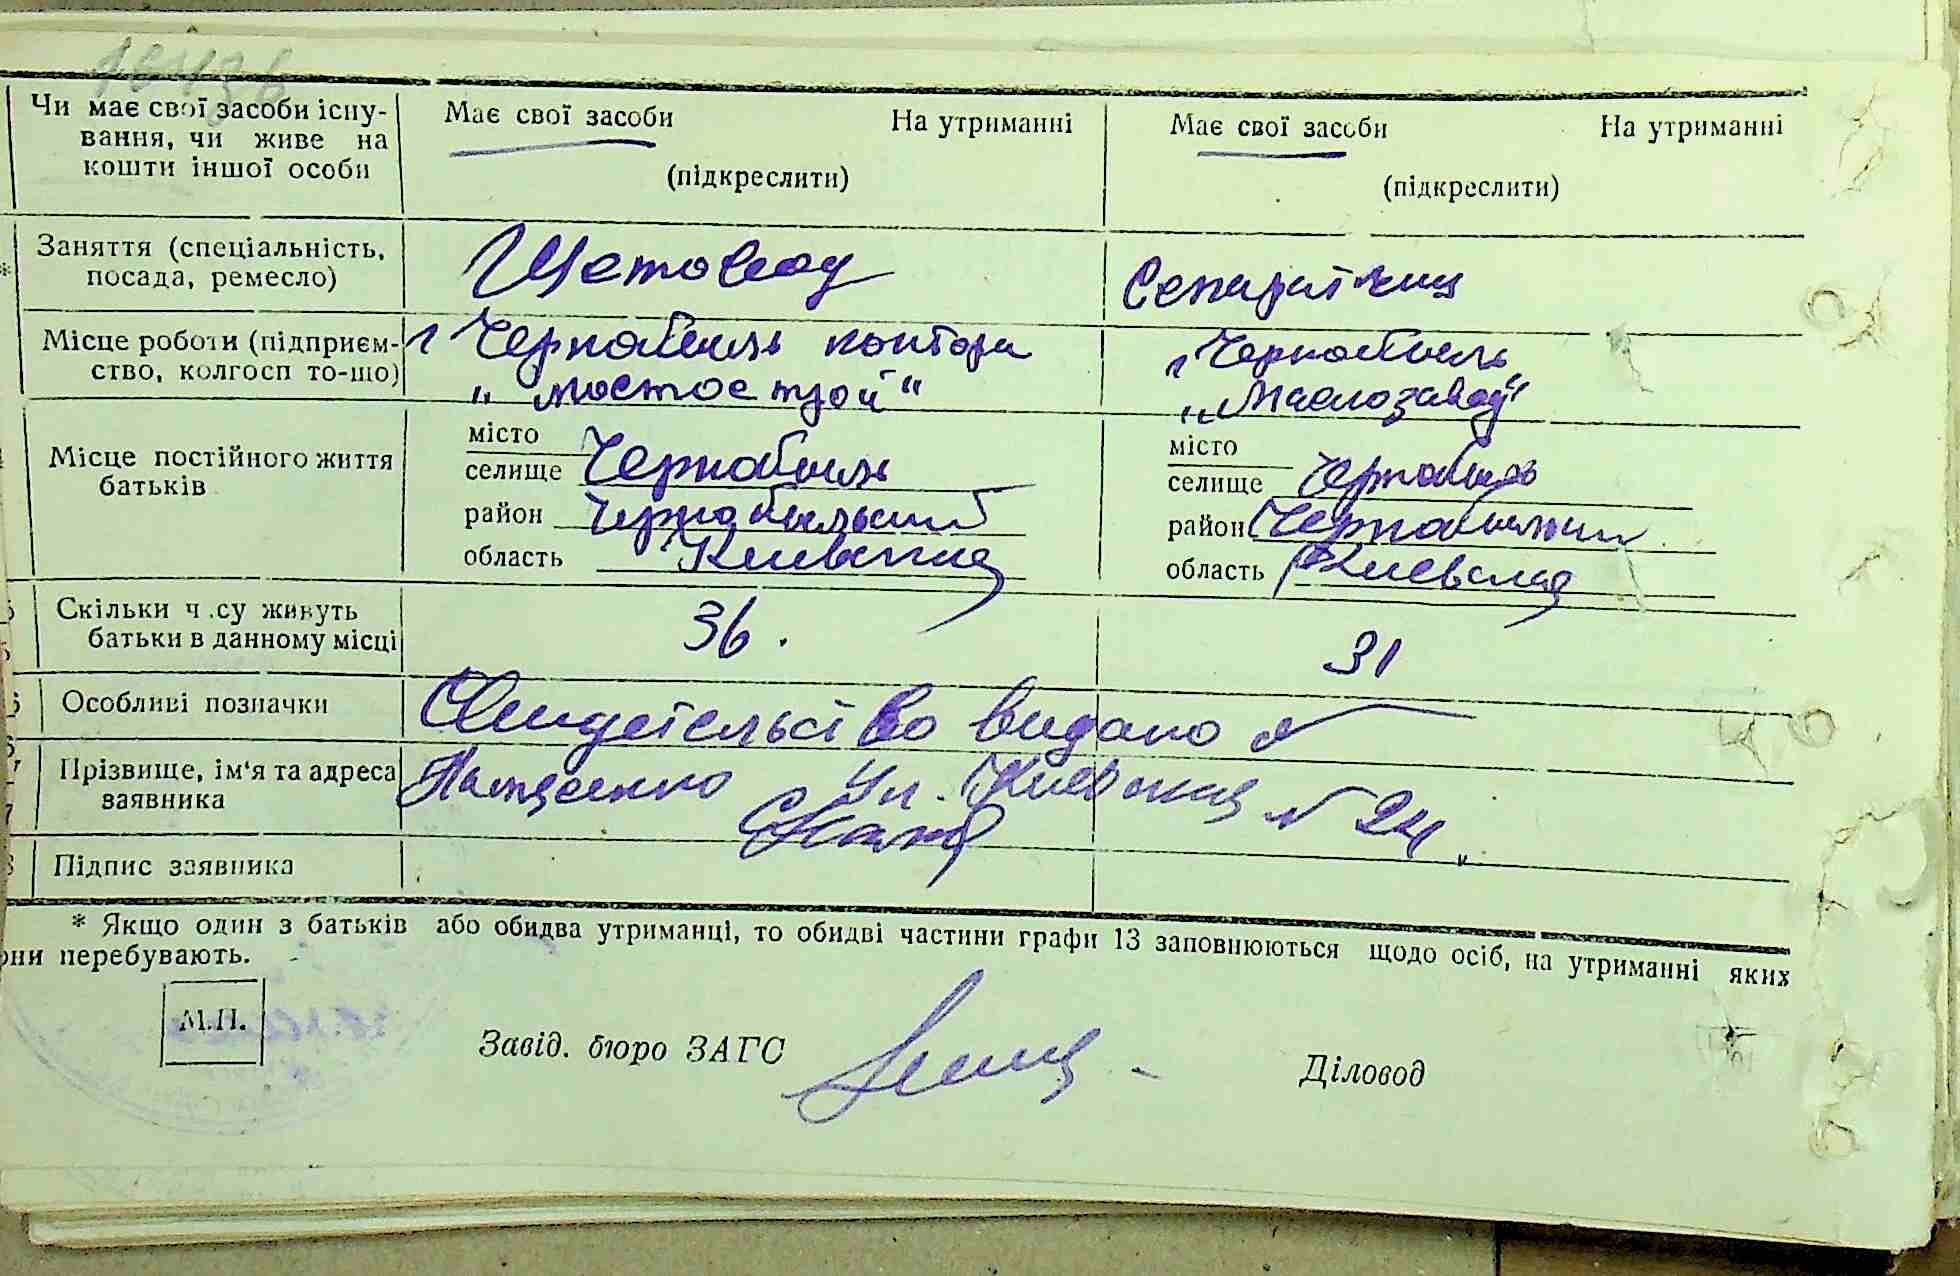 Чи має свої засоби існу-
вання, чи живе на
кошти іншої особи
Має свої засоби На утриманні
(підкреслити)
Має свої засоби На утриманні
(підкреслити)
Заняття (спеціальність,
посада, ремесло)
Щетовод
Сепаратчиц
Місце роботи (підприєм-
ство, колгосп то-що)
г Чернобыль контора
"Мостострой"
г Чернобыль
"Маслозавод"
Місце постійного життя
батьків
місто
селище Чернобыль
район Чернобыльский
область Киевская
місто
селище Чернобыль
район Чернобыльский
область Киевская
Скільки ч су живуть
батьки в данному місці
36.
31
Особливі позначки
Свидетельство видано №
Прізвище, ім'я та адреса
заявника
Ул. Киевская № 24.
Підпис заявника
* Якщо один з батьків або обидва утриманці, то обидві частини графи 13 заповнюються щодо осіб, на утриманні яких
они перебувають.
М.П.
Завід. бюро ЗАГС
Діловод